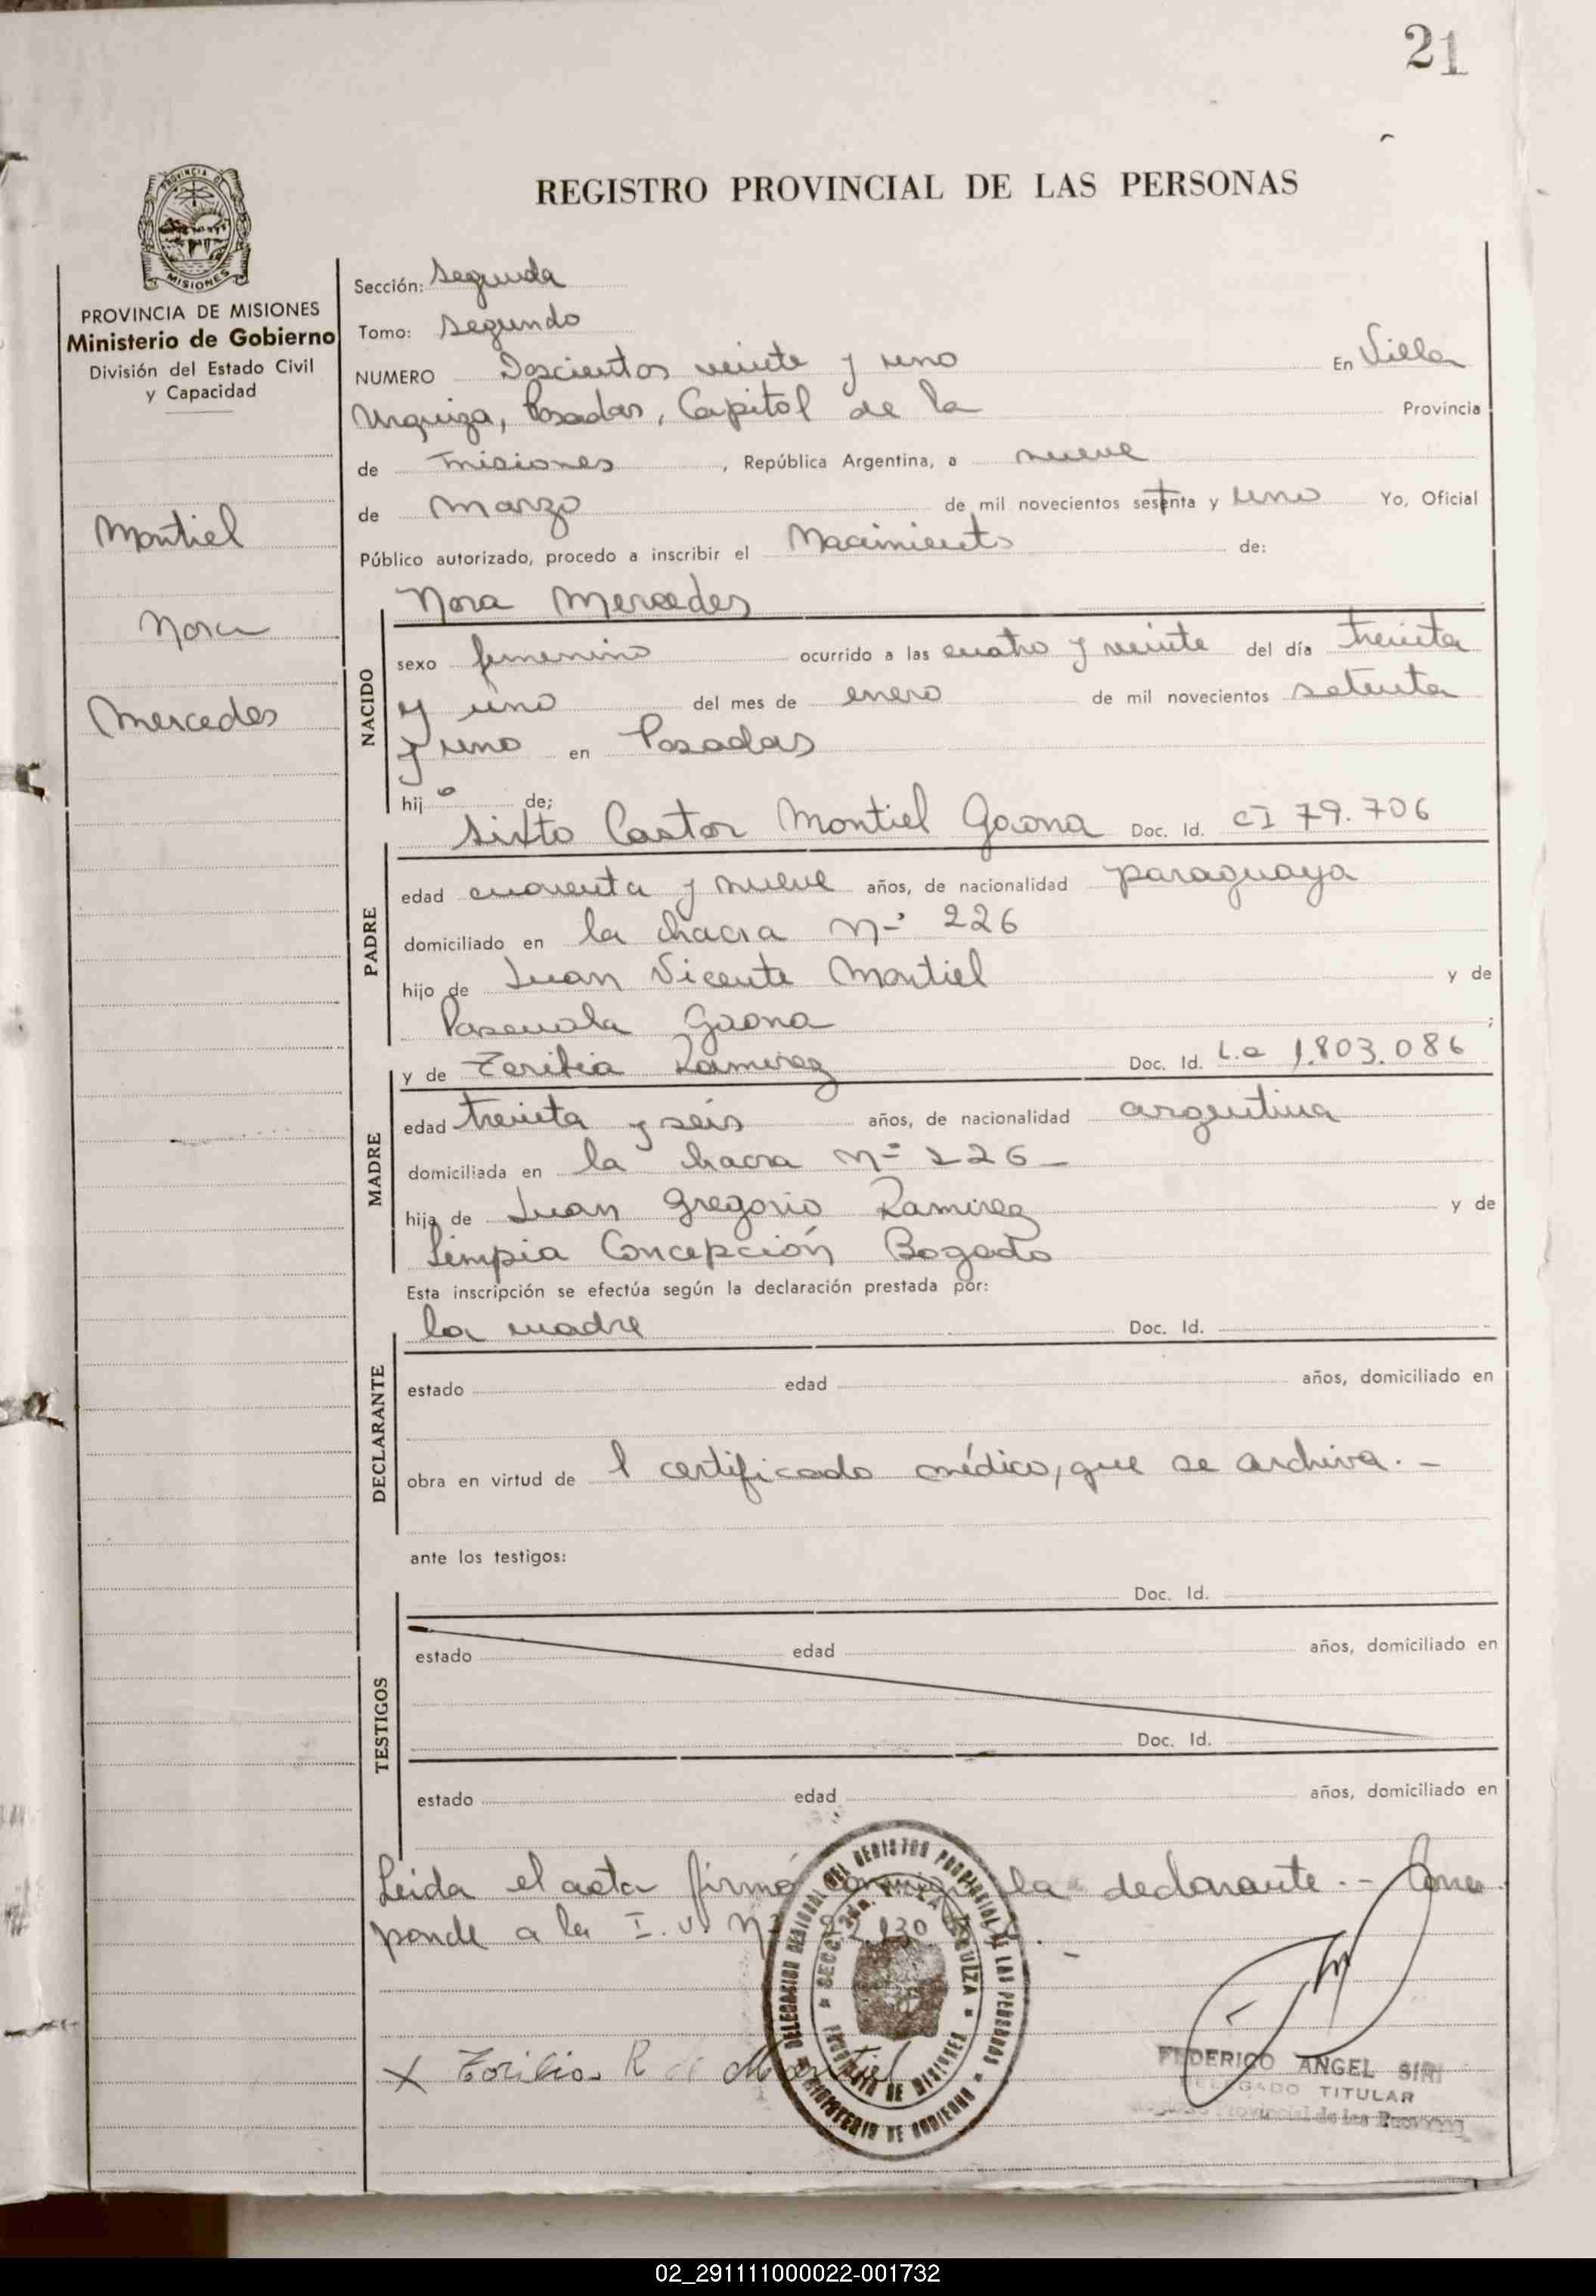 21
REGISTRO PROVINCIAL DE LAS PERSONAS
PROVINCIA DE MISIONES
Ministerio de Gobierno
División del Estado Civil
y Capacidad
Montiel
Nora
Mercedes
Sección: Segunda
Tomo: Segundo
NUMERO Doscientos veinte y uno En Villa
Urquiza, Posadas, Capital de la Provincia
de Misiones, República Argentina, a nueve
de Marzo de mil novecientos setenta y uno Yo, Oficial
Público autorizado, procedo a inscribir el Nacimiento de:
Nora Mercedes
NACIDO
sexo femenino ocurrido a las cuatro y veinte del día treinta
y uno del mes de enero de mil novecientos setenta
y uno en Posadas
hija de;
Sixto Castor Montiel Gaona Doc. Id. CI 79.706
PADRE
edad cuarenta y nueve años, de nacionalidad paraguaya
domiciliado en la chacra Nº 226
hijo de Juan Vicente Montiel y de
Pascuala Gaona ;
y de Toribia Ramirez Doc. Id. L.C 1.803.086
MADRE
edad treinta y seis años, de nacionalidad argentina
domiciliada en la chacra Nº 226
hija de Juan Gregorio Ramirez y de
Limpia Concepción Bogado
Esta inscripción se efectúa según la declaración prestada por:
la madre Doc. Id.
DECLARANTE
estado edad años, domiciliado en
obra en virtud de l certificado médico, que se archiva. -
ante los testigos:
Doc. Id.
TESTIGOS
estado edad años, domiciliado en
Doc. Id.
estado edad años, domiciliado en
Leida el acta firmó conmigo la declarante. - Corres
ponde a la I. U. Nº
X Toribia R de Montiel
DELEGACION REGIONAL DEL REGISTRO PROVINCIAL DE LAS PERSONAS
MINISTERIO DE GOBIERNO
SECC. 2da. VILLA URQUIZA
PROVINCIA DE MISIONES
FEDERICO ANGEL SIRI
DELEGADO TITULAR
Registro Provincial de las Personas
02_291111000022-001732